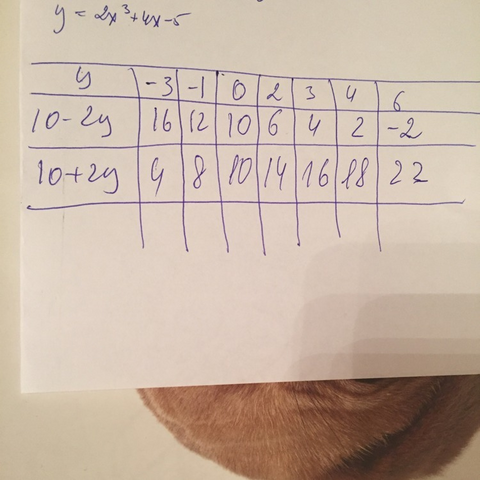 y = 2x³+4x-5
y -3 -1 0 2 3 4 6
10-2y 16 12 10 6 4 2 -2
10+2y 4 8 10 14 16 18 22